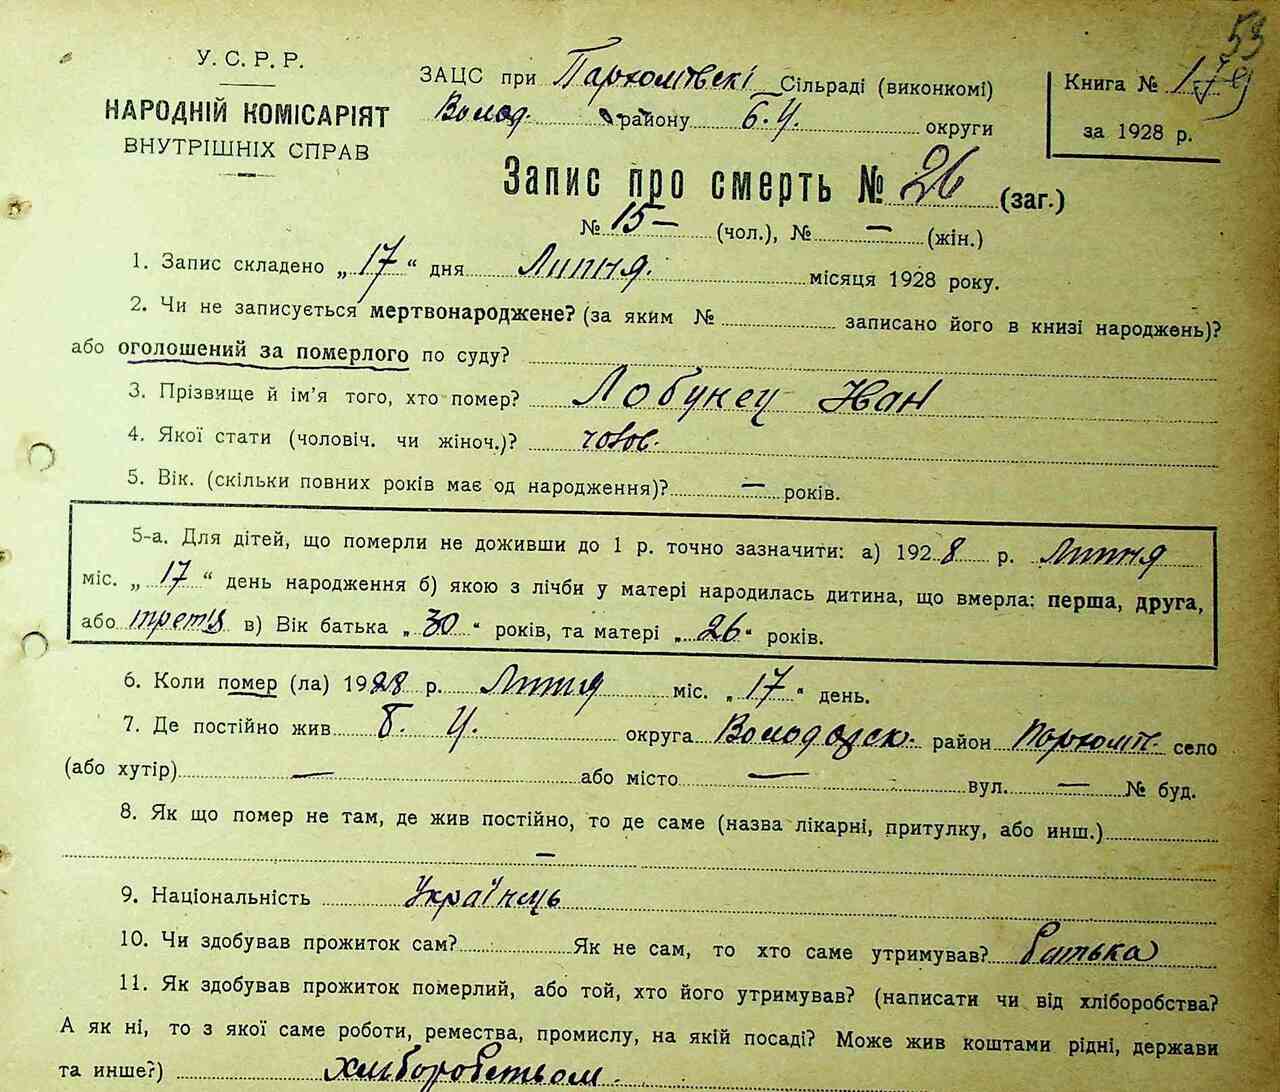 53
У. С. Р. Р.
НАРОДНІЙ КОМІСАРІЯТ
ВНУТРІШНІХ СПРАВ
ЗАЦС при Пархомівскі Сільраді (виконкомі)
Волод. району Б.Ц. округи
Книга №
за 1928 р.
Запис про смерть № 26 (заг.)
№ 15— (чол.), № — (жін.)
1. Запис складено „ 17 “ дня Липня. місяця 1928 року.
2. Чи не записується мертвонароджене? (за яким № записано його в книзі народжень)?
або оголошений за померлого по суду?
3. Прізвище й ім'я того, хто помер? Лобунец Иван
4. Якої стати (чоловіч. чи жіноч.)? чолов.
5. Вік. (скільки повних років має од народження)? — років.
5-а. Для дітей, що померли не доживши до 1 р. точно зазначити: а) 1928 р. Липня
міс. „ 17 “ день народження б) якою з лічби у матері народилась дитина, що вмерла: перша, друга,
або третя в) Вік батька „ 30 “ років, та матері „ 26 “ років.
6. Коли помер (ла) 1928 р. Липня міс. „ 17 “ день.
7. Де постійно жив Б. Ц. округа Володарск. район Пархом. село
(або хутір) — або місто — вул. — № буд.
8. Як що помер не там, де жив постійно, то де саме (назва лікарні, притулку, або инш.)
—
9. Національність Українець
10. Чи здобував прожиток сам? Як не сам, то хто саме утримував? батька
11. Як здобував прожиток померлий, або той, хто його утримував? (написати чи від хліборобства?
А як ні, то з якої саме роботи, ремества, промислу, на якій посаді? Може жив коштами рідні, держави
та инше?) хліборобством.